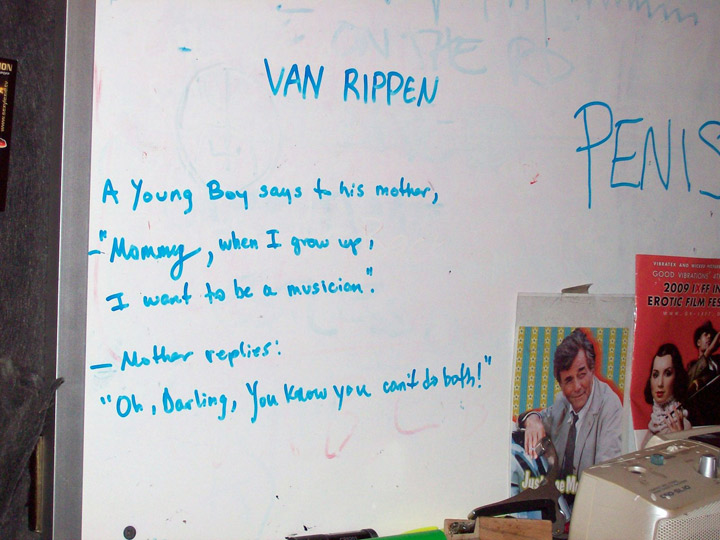 VAN RIPPEN
PENIS
A Young Boy says to his mother,
–"Mommy, when I grow up,
I want to be a musician".
– Mother replies:
"Oh, Darling, You know you can't do both!"
VIBRATEX AND
GOOD VIBRATIONS
2009 IXFF IN
EROTIC FILM FES
Jus